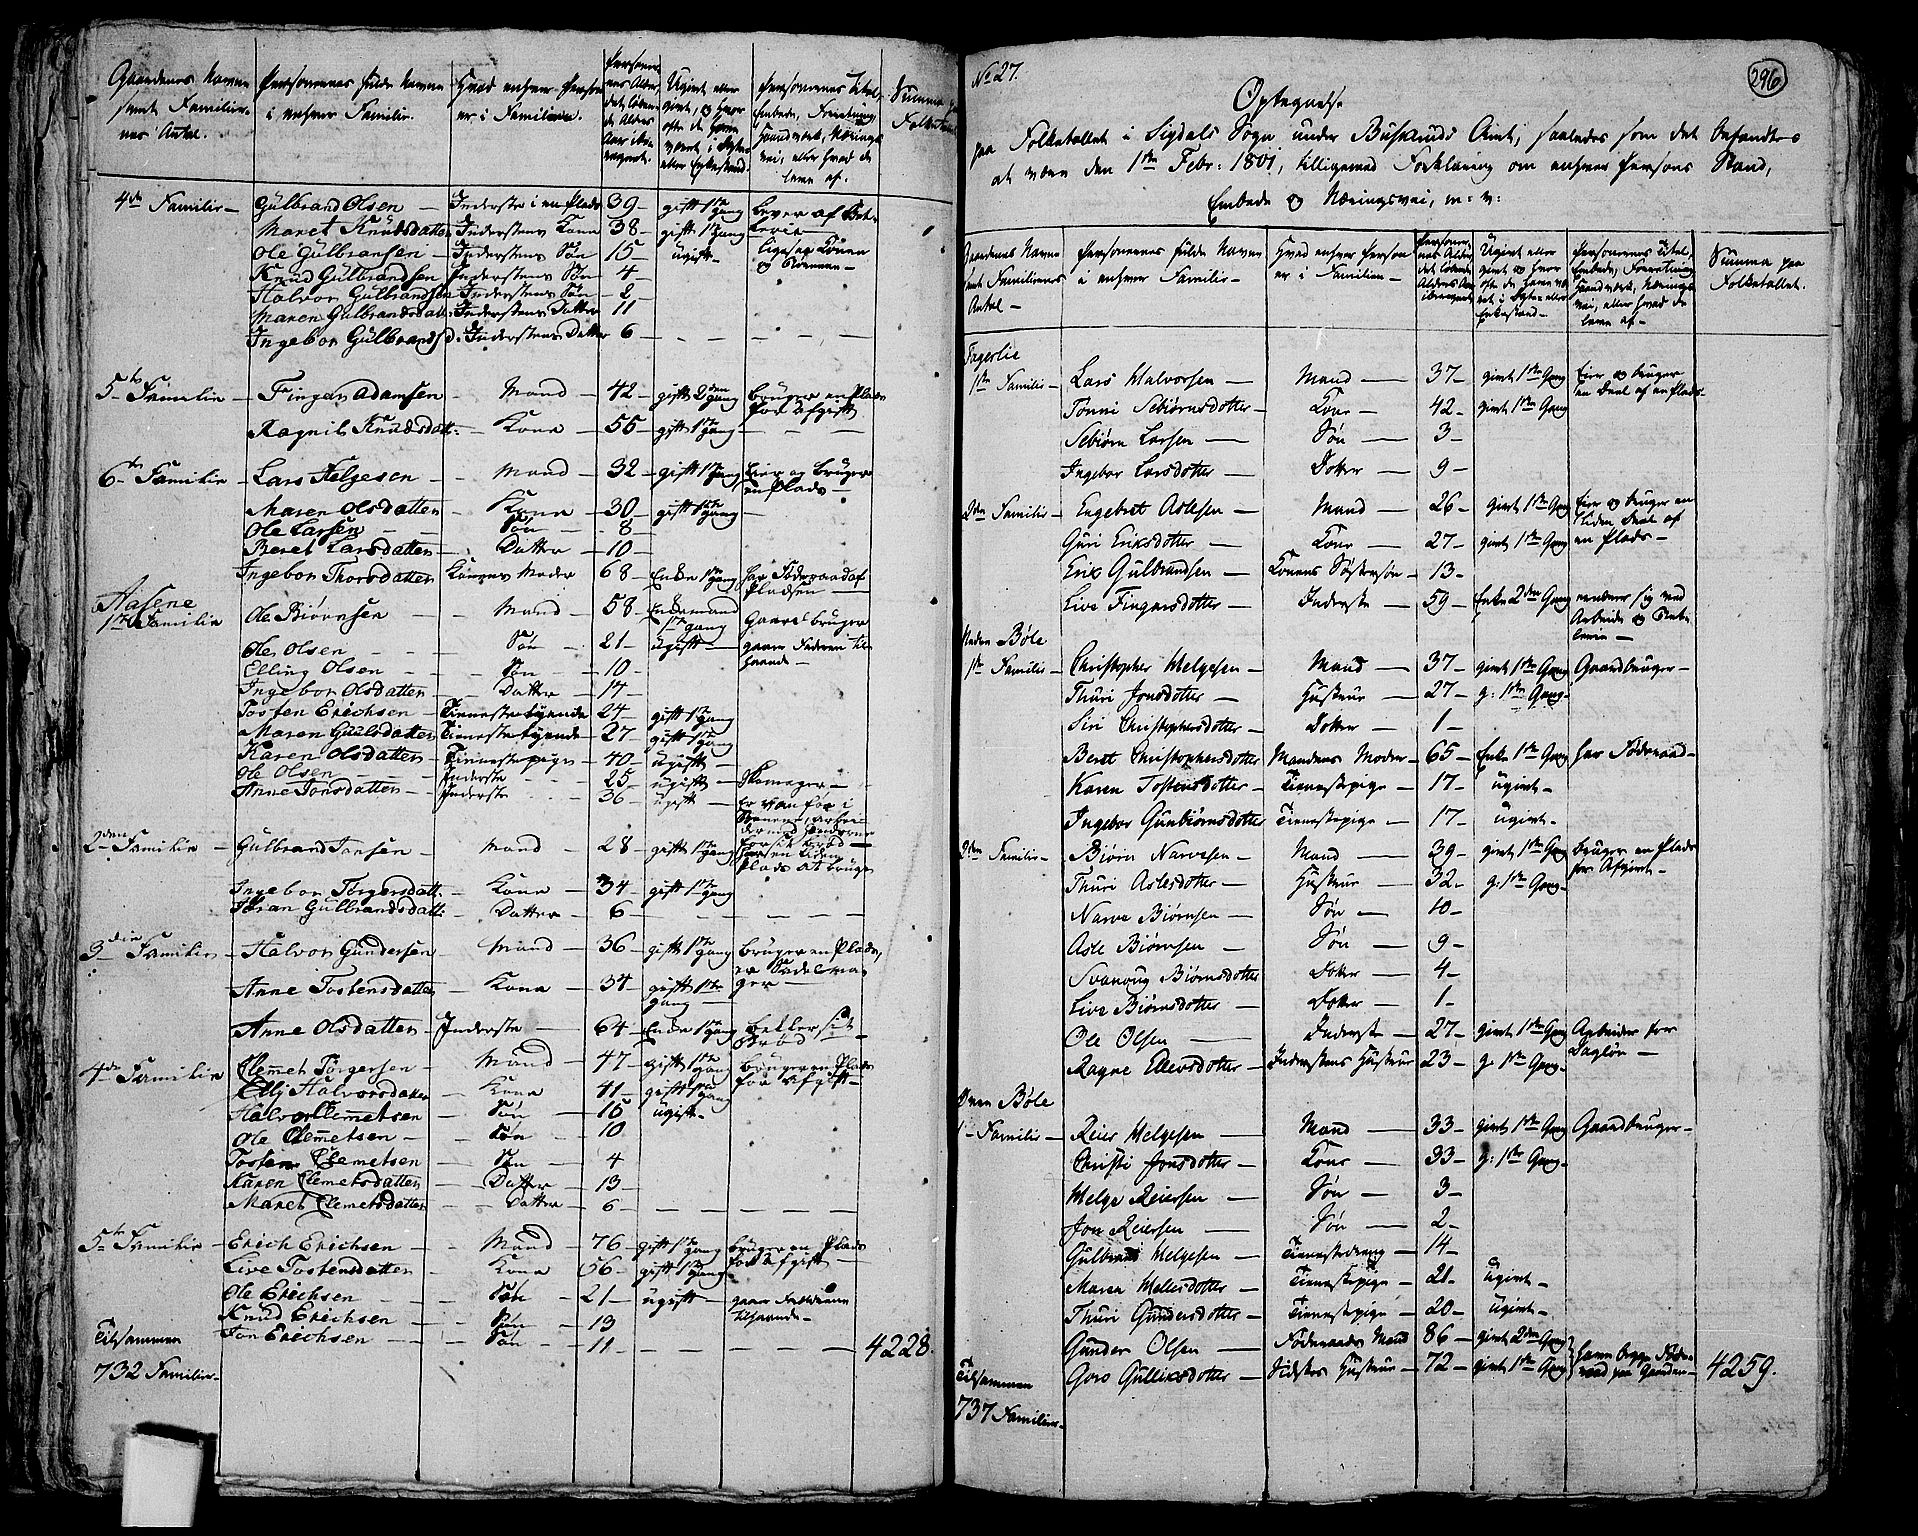 Gaardenes Navne samt Familier- nes Antal.
Personernes fulde Navne i enhver Familie.
Hvad enhver Person er i Familien.
Personer- nes Alder, det løben- de Alders Aar ibe- regnet.
Ugivt eller givt, og hvor ofte de have været i Egte- eller Enkestand.
Personernes Titel, Embede, Forretning, Haandverk, Nærings- vei, eller hvad de leve af.
Summa Folketal
4de Familie – Gulbrand Olsen – Inderste i en Plads 39 – gift 1ste gang lever af Bet-
Maret Knudsdatter Inderstens Kone 38 – gift 1ste gang lerie
Ole Gulbransen – Inderstens Søn 15 – ugift – ligesaa Konen
Knud Gulbrandsen Inderstens Søn 4 og Børnene –
Halvor Gulbrandsen Inderstens Søn – 2 –
Maren Gulbrandsdatt: Inderstens Datter 11
Ingebor Gulbrandsd. Inderstens Datter 6 –
5te Familie – Finger Adamsen Mand – 42 – gift 2den gang bruger en Plads for afgift
Ragnil Knudsdatt: – Kone – 55 – gift 1ste gang
6te Familie – Lars Helgesen – Mand – 32 – gift 1ste gang Eier og bruger en Plads –
Maren Olsdatter – Kone – 30 – gift 1ste gang
Ole Larsen – Søn – 8 –
Beret Larsdatter – Datter – 10 –
Ingebor Thorsdatter Konens Moder 68 – Enke 1ste gang har Føderaad af Pladsen –
Aasene
1ste Familie Ole Biørnsen – Mand – 58 – Enkemand 1ste gang Gaardbruger
Ole Olsen – Søn – 21 – ugift – gaaer Faderen til haande –
Elling Olsen – Søn – 10 –
Ingebor Olsdatter – Datter – 17
Tosten Erichsen – Tienestetyende – 24 – gift 1ste gang
Maren Guulsdatter Tienestetyende – 27 gift 1ste gang
Karen Olsdatter – Tienestepige – 40 – ugift –
Ole Olsen – Inderste 25 – ugift – Skomager –
Anne Jonsdatter – Inderste 36 – ugift – Er vanfør i
2den Familie – Gulbrand Jansen – Mand – 28 – gift 1ste gang
Ingebor Torgersdatt: – Kone – 34 – gift 1ste gang
Jøran Gulbrandsdatt: – Datter – 6 –
3die Familie – Halvor Gundersen Mand – 36 – gift 1ste gang bruger en Plads, er Sadelma- ger –
Anne Tostensdatter – Kone – 34 – gift 1ste gang –
Anne Olsdatter – Inderste – 64 – Enke 1ste gang betler sit Brød
4de Familie Clemet Torgersen – Mand – 47 – gift 1ste gang bruger en Plads for afgift –
Elj Halvorsdatter – Kone – 41 – gift 1ste gang
Halvor Clemetsen – Søn – 16 – ugift –
Ole Clemetsen – Søn – 10
Tosten Clemetsen – Søn – 4
Karen Clemetsdatter – Datter – 13 –
Maret Clemetsdatter – Datter – 6 –
5te Familie – Erich Erichsen – Mand – 76 – gift 1ste gang bruger en Plads for afgift –
Live Tostensdatter – Kone – 56 – gift 1ste gang
Ole Erichsen – Søn – 21 – ugift – gaaer Forældrene tilhaande –
Knud Erichsen – Søn – 13
Jon Erichsen – Søn – 11 – 4228.
Tilsammen
732 Familier –
No 27.
296
Optegnelse
paa Folketallet i Sigdals Sogn under Buskruds Amt, saaledes som det befandtes
at være den 1ste Febr: 1801, tilligemed Forklaring om enhver Persons Stand,
Embede og Næringsvei, m: v:
Gaardenes Navne samt Familiernes Antal –
Personernes fulde Navne i enhver Familie –
Hvad enhver Person er i Familien –
Personer- nes Alder, det løbende Alders Aar iberegnet
Ugivt eller givt og hvor ofte de have væ- ret i Egte- eller Enkestand –
Personernes Titel, Embede, Forretning, Haandverk, Nærings- vei, eller hvad de leve af –
Summa paa Folketallet.
Fagerlie
1ste Familie – Lars Halvorsen – Mand – 37 – givt 1ste Gang Eier og bruger en Deel af en Plads –
Tonni Sebiørnsdotter – Kone – 42 – givt 1ste Gang
Sebiørn Larsen – Søn – 3 –
Ingebor Larsdotter – Doter – 9 –
2den Familie – Engebret Aslesen – Mand – 26 – givt 1ste Gang Eier og bruger en liden Deel af en Plads –
Guri Eriksdotter – Kone – 27 – givt 1ste Gang
Erik Gulbrandsen – Konens Søstersøn – 13 –
Live Fingarsdotter – Inderste – 59 – Enke 2den Gang ernærer sig ved Arbeide og Bet- lerie –
Neder Bøle
1ste Familie – Christopher Helgesen – Mand – 37 – givt 1ste Gang Gaardbruger –
Thuri Jonsdotter – Hustrue – 27 – g: 1ste Gang –
Siri Christophersdotter – Doter – 1 –
Beret Christophersdotter Mandens Moder – 65 – Enke 1ste Gang har Føderaad –
Karen Tostensdotter – Tienestepige – 17 – ugivt –
Ingebor Gunbiørnsdotter Tienestepige – 17 – ugivt –
2den Familie – Biørn Narvesen – Mand – 39 – givt 1ste Gang bruger en Plads for Afgivt –
Thuri Aslesdotter – Hustrue – 32 – g: 1ste Gang –
Narve Biørnsen – Søn – 10 –
Asle Biørnsen – Søn – 9 –
Svanoug Biørnsdotter Doter – 4 –
Live Biørnsdotter – Doter – 1 –
Ole Olsen – Inderst – 27 – givt 1ste Gang Arbeider for Dagløn –
Ragne Ellevsdotter – Inderstens Hustrue 23 – g: 1ste Gang –
Øvre Bøle
1 – Familie – Reier Helgesen – Mand – 33 – givt 1ste Gang Gaardbruger –
Christi Jonsdotter – Kone – 33 – g: 1ste Gang –
Helge Reiersen – Søn – 3 –
Jon Reiersen – Søn – 2 –
Gulbrand Helgesen – Tienestedreng – 14 –
Maren Hellesdotter – Tienestepige – 21 – ugivt –
Thuri Gundersdotter – Tienestepige – 20 – ugivt –
Gunder Olsen – Føderaads Mand 86 – givt 2den Gang have begge Føde-
Goro Gulliksdotter – Sidstes Hustrue – 72 – givt 1ste Gang raad paa Gaarden – 4259.
Tilsammen
737 Familier –